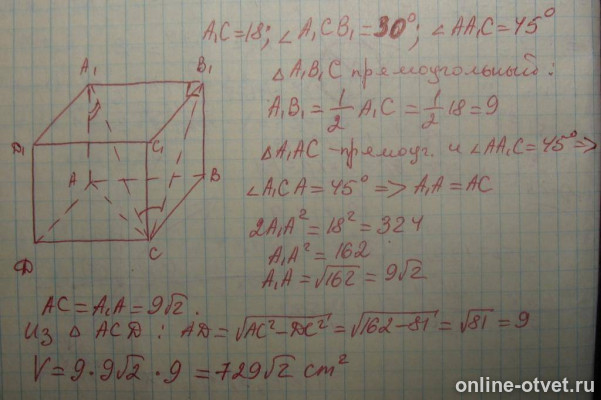 A₁C=18; ∠A₁CB₁=30°; ∠AA₁C=45°
△A₁B₁C прямоугольный:
A₁B₁=1/2 A₁C=1/2 18=9
△A₁AC-прямоуг. и ∠AA₁C=45°=>
∠A₁CA=45°=>A₁A=AC
2A₁A²=18²=324
A₁A²=162
A₁A=√162=9√2
AC=A₁A=9√2.
Из △ACД: AД=√AC²-ДC²=√162-81=√81=9
V=9·9√2·9=729√2 cm²
A₁
B₁
Д₁
C₁
A
B
Д
C
online-otvet.ru